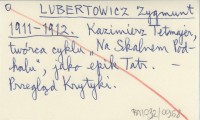 LUBERTOWICZ Zygmunt
1911-1912. Kazimierz Tetmajer,
twórca cyklu „Na Skalnem Pod-
halu", jako epik Tatr. -
Przegląd Krytyki.